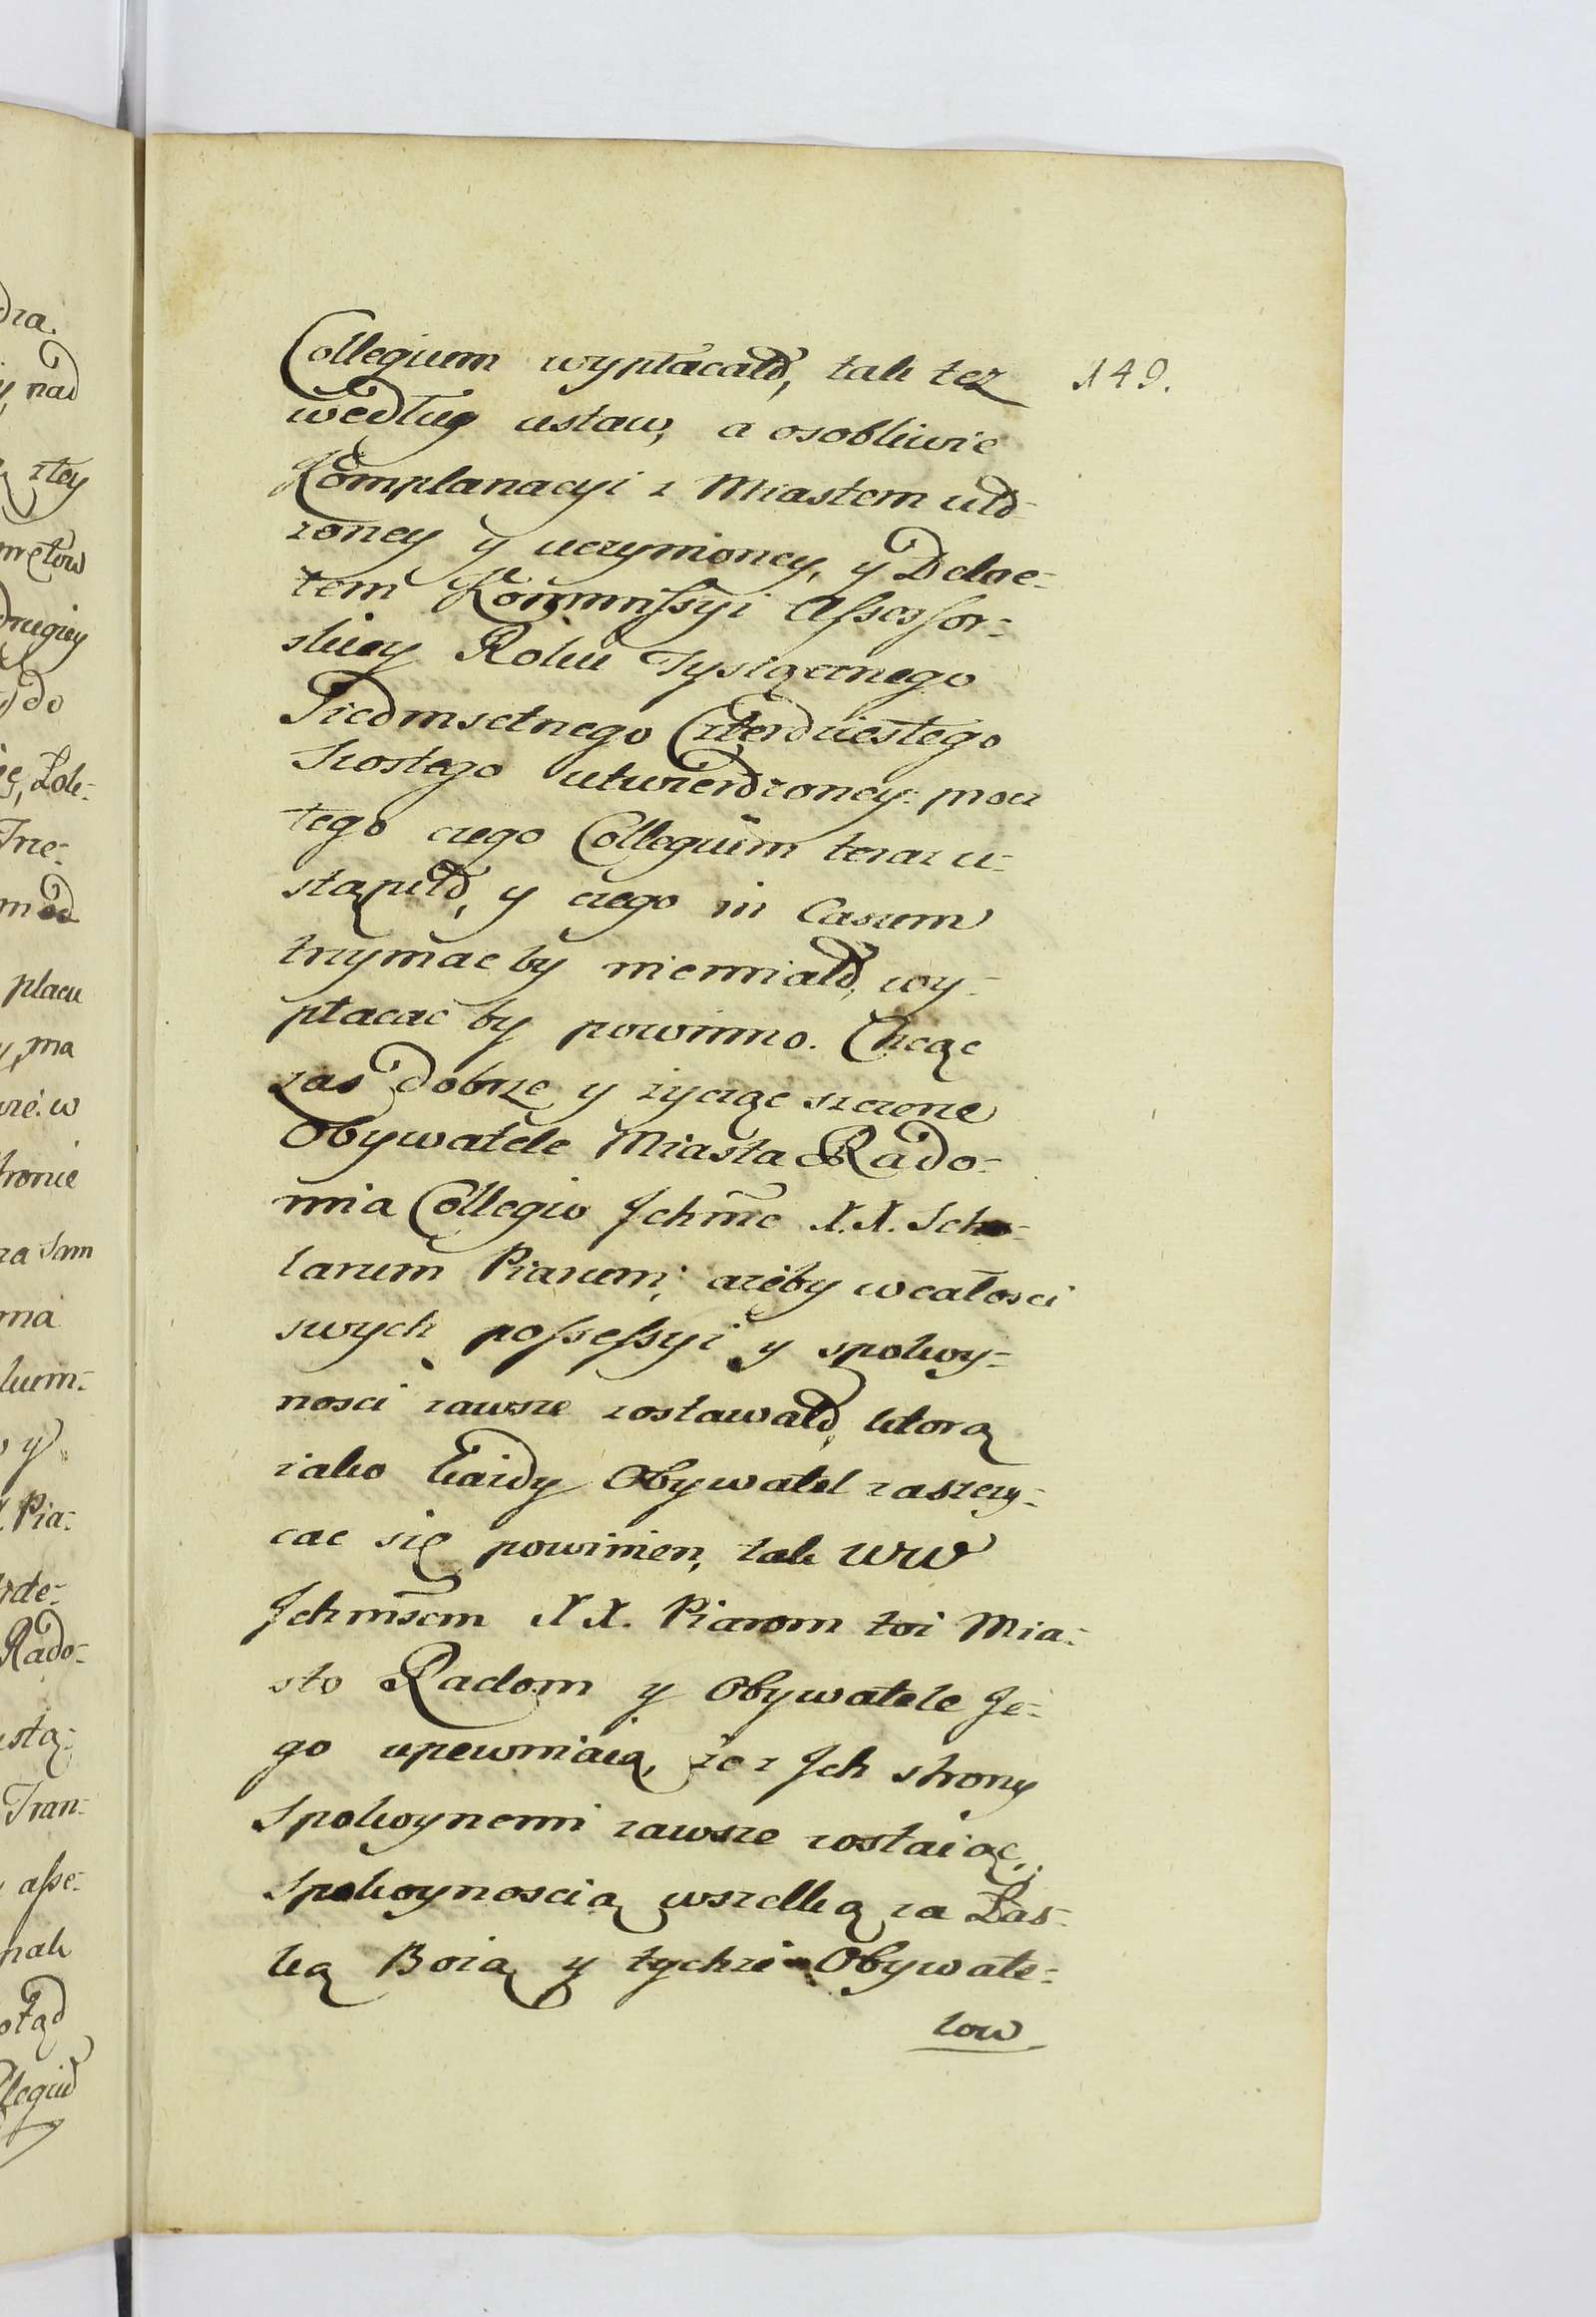 Collegium wypłacało, tak też
149.
według ustaw, a osobliwie
Komplanacyi z Miastem uło-
żoney y uczynioney, y Dekre-
tem Kommissyi Assessor-
skiey Roku Tysiącznego
Siedmsetnego Czterdziestego
Szostego utwierdzoney: procz
tego czego Collegium teraz u-
stąpiło, y czego in Casum
trzymac by niemiało, wy-
płacać by powinno. Chcąc
zas dobrze y życząc szczerze
Obywatele Miasta Rado-
mia Collegio Jchmc X.X. Scho-
larum Piarum; ażeby wcałosci
swych possessyi y spokoy-
nosci zawsze zostawało, ktorą
iako każdy Obywatel zaszczy-
cac się powinien, tak WW
Jchmscm XX. Piarom toż Mia-
sto Radom y Obywatele Je-
go upewniaią, że z Jch strony
Spokoynemi zawsze zostaiąc,
Spokoynoscią wszelką za Łas-
ką Bożą y tychże Obywate-
low
dza.
y, nad
ztey
mętow
drugiey
do
Trze-
placu
y, ma
w
stronie
za Sam
ma
kum-
y
Pia-
Rado-
ustą-
Tran-
asse-
nak